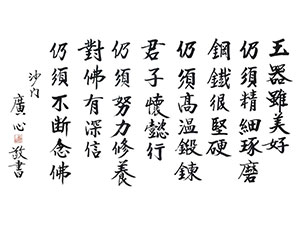 玉器雖美好
仍須精細琢磨
鋼鐵很堅硬
仍須高溫鍛鍊
君子懷懿行
仍須努力修養
對佛有深信
仍須不斷念佛
沙內
廣心
敬書